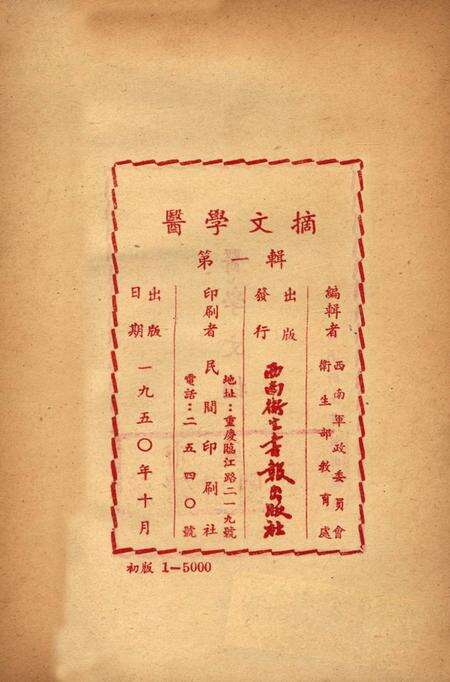 醫學文摘
第一輯
編輯者
西南軍政委員會
衛生部教育處
出版
發行
西南衛生書報出版社
印刷者 民間印刷社
地址：重慶臨江路二一九號
電話：二五四〇號
出版
日期
一九五〇年十月
初版 1—5000